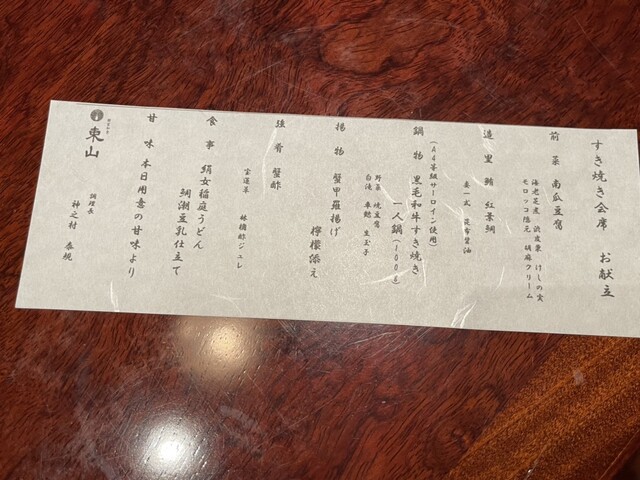 すき焼き会席 お献立
前菜 南瓜豆腐
海老芝煮 渋皮栗 けしの実
モロッコ隠元 胡麻クリーム
造里 鮪 紅葉鯛
妻一式 昆布醤油
鍋物 黒毛和牛すき焼き
一人鍋(100g)
(A4等級サーロイン使用)
野菜 焼豆腐
白滝 車麩 生玉子
揚物 蟹甲羅揚げ
檸檬添え
強肴 蟹酢
宝蓮草 林檎酢ジュレ
食事 絹女稲庭うどん
鯛潮豆乳仕立て
甘味 本日用意の甘味より
東山
調理長
神之村 泰規